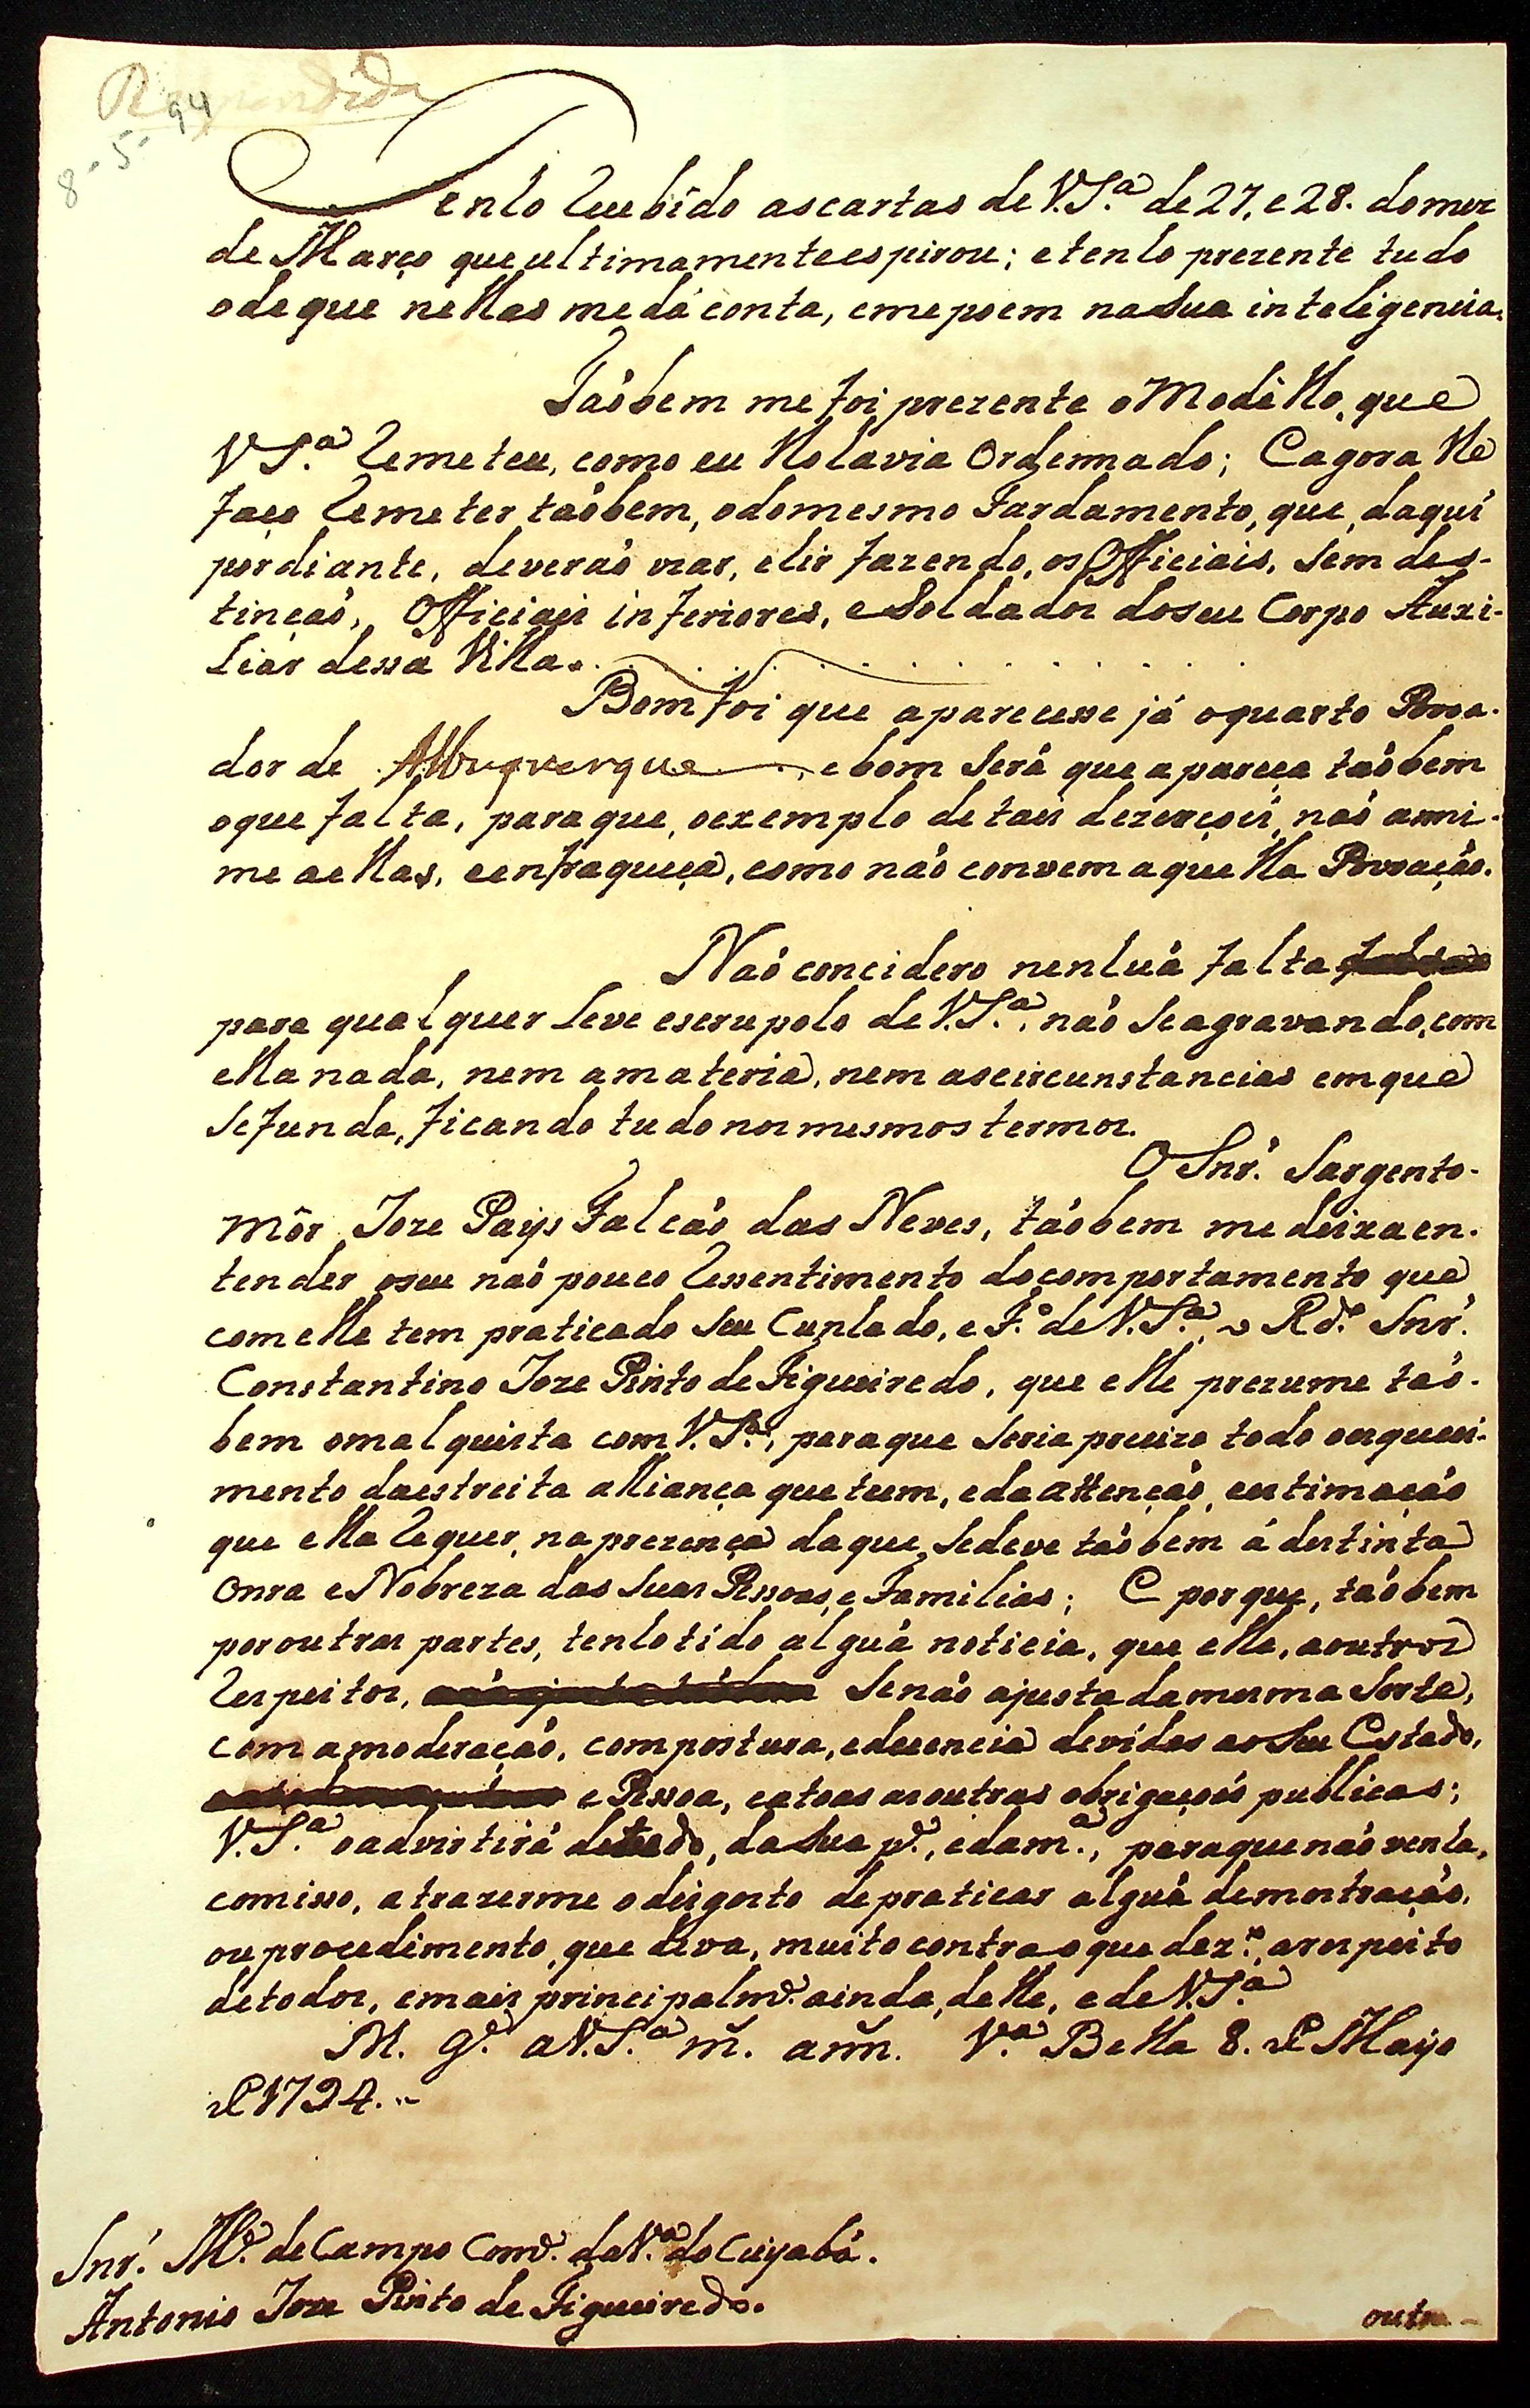 8-5-94
Tenho recebido as cartas de V.S.ª de 27, e 28. do mez
de Março que ultimamente espirou; e tenho prezente tudo
o de que nellas me dá conta, e me poem na sua inteligencia.
Taõbem me foi prezente o Modêllo, que
V S.ª remeteu, como eu lho havia Ordennado; E agora lhe
faço remeter taõbem, o do mesmo Fardamento, que, daqui
por diante, deveraõ uzar, e hir fazendo, os Officiais, sem des-
tinçaõ, Officiais inferiores, e Soldados do seu Corpo Auxi-
liar dessa Villa.
Bom foi que aparecesse já o quarto Povoa-
dor de Albuquerque, e bom será que apareça taõbem
o que falta, para que, o exemplo de tais dezerçoẽs, naõ anni-
me a ellas, e enfraqueça, como naõ convem aquella Povoaçaõ.
Naõ concidero nenhuã falta
para qualquer leve escrupolo de V.S.ª, naõ se agravando, com
ella nada, nem a materia, nem as circunstancias em que
se funda, ficando tudo nos mesmos termos.
O Snr. Sargento-
môr Joze Pays Falcaõ das Neves, taõbem me deixa en-
tender o seu naõ pouco ressentimento do comportamento que
com elle tem praticado seu Cunhado, e F.º de V.S.ª, o Rd.º Snr.
Constantino Joze Pinto de Figueiredo, que elle prezume taõ-
bem o malquista com V.S.ª, para que seria precizo todo o esqueci-
mento da estreita alliança que teem, e da attençaõ, e estimaçaõ
que ella requer, na prezença da que, se deve taõbem á destinta
Onra e Nobreza das suas Pessoas, e Familias; E porque, taõbem
por outras partes, tenho tido alguã noticia, que elle, a outros
respeitos, se naõ ajusta da mesma sorte,
com a moderaçaõ, compostura, e decencia devídas ao seu Estado,
e Pessoa, e a toas as outras obrigaçoẽs publicas;
V.S.ª o advirtirá de tudo, da sua p.e, e da m.ª, para que naõ venha,
com isso, a trazerme o disgosto de praticar alguã demonstraçaõ,
ou procedimento, que deva, muito contra o que dez.º, a respeito
de todos, e mais principalm.e ainda, delle, e de V.S.ª
N. g.e a V.S.ª m. ann. V.ª Bella 8. de Mayo
de 1794.
Snr. M.e de Campo Com.e da V.ª do Cuyabá.
Antonio Joze Pinto de Figueiredo.
outra